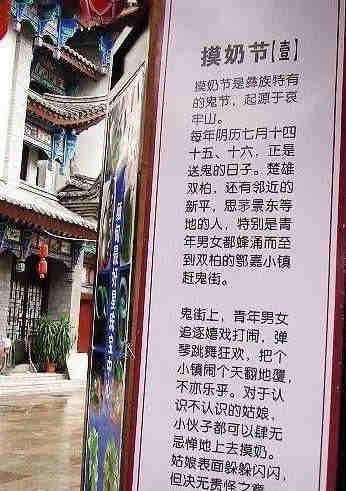 摸奶节【壹】
摸奶节是彝族特有
的鬼节，起源于哀
牢山。
每年阴历七月十四
十五、十六，正是
送鬼的日子。楚雄
双柏，还有邻近的
新平，思茅景东等
地的人，特别是青
年男女都蜂涌而至
到双柏的鄂嘉小镇
赶鬼街。
鬼街上，青年男女
追逐嬉戏打闹，弹
琴跳舞狂欢，把个
小镇闹个天翻地覆，
不亦乐乎。对于认
识不认识的姑娘，
小伙子都可以肆无
忌惮地上去摸奶。
姑娘表面躲躲闪闪，
但决无责怪之意